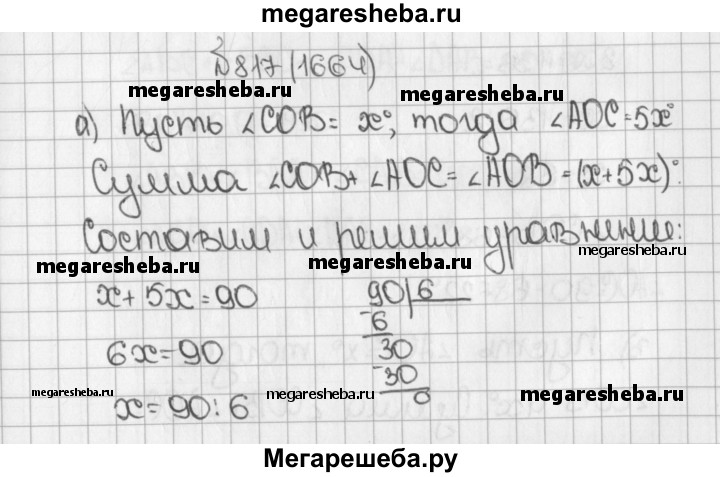 megaresheba.ru
№817 (1664)
megaresheba.ru megaresheba.ru
а) Пусть ∠COB = x°, тогда ∠AOC = 5x°
Сумма ∠COB + ∠AOC = ∠AOB = (x + 5x)°.
Составим и решим уравнение:
megaresheba.ru megaresheba.ru megaresheba.ru
x + 5x = 90 90 | 6
-6
6x = 90 30
megaresheba.ru megaresheba.ru -30 megaresheba.ru
x = 90 : 6 0
Мегарешеба.ру